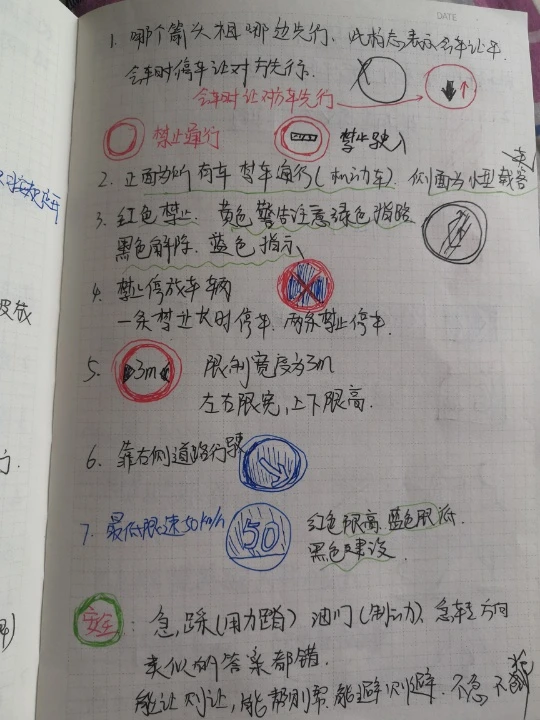 DATE
1. 哪个箭头粗哪边先行. 此标志表示会车让车.
会车时停车让对方先行.
会车时让对方车先行
禁止通行 禁止驶入
2. 正面为所有车禁车通行(机动车). 侧面为小型载客
3. 红色禁止. 黄色警告注意绿色指路
黑色解除. 蓝色指示
4. 禁止停放车辆
一条禁止长时停车. 两条禁止停车.
5. 3m 限制宽度为3m
左右限宽,上下限高.
6. 靠右侧道路行驶
7. 最低限速50km/h 50 红色限高 蓝色限低.
黑色建议
安全: 急,踩(用力踏) 油门(制动力) 急转方向
类似的答案都错.
能让则让,能帮则帮 能避则避. 不急 不